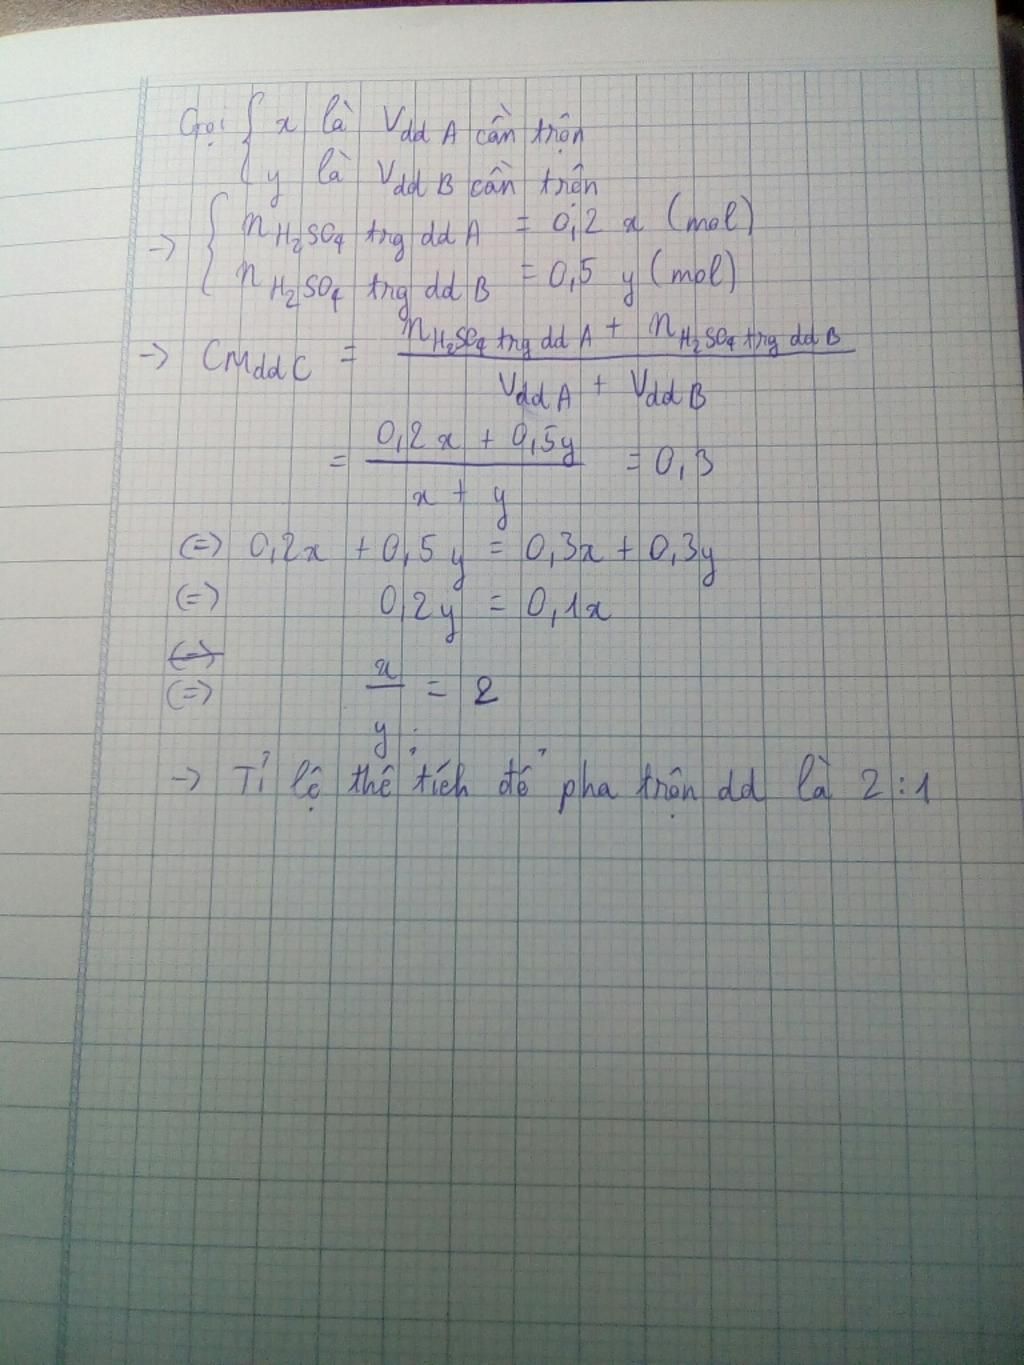 Gọi { x là Vdd A cần trộn
y là Vdd B cần trộn
→ { nH₂SO₄ trg dd A = 0,2 x (mol)
nH₂SO₄ trg dd B = 0,5 y (mol)
→ CMddC = nH₂SO₄ trg dd A + nH₂SO₄ trg dd B
Vdd A + Vdd B
= 0,2x + 0,5y = 0,3
x + y
(=) 0,2x + 0,5y = 0,3x + 0,3y
(=) 0,2y = 0,1x
(=)
(=) x = 2
y
→ Tỉ lệ thể tích để pha trộn dd là 2:1